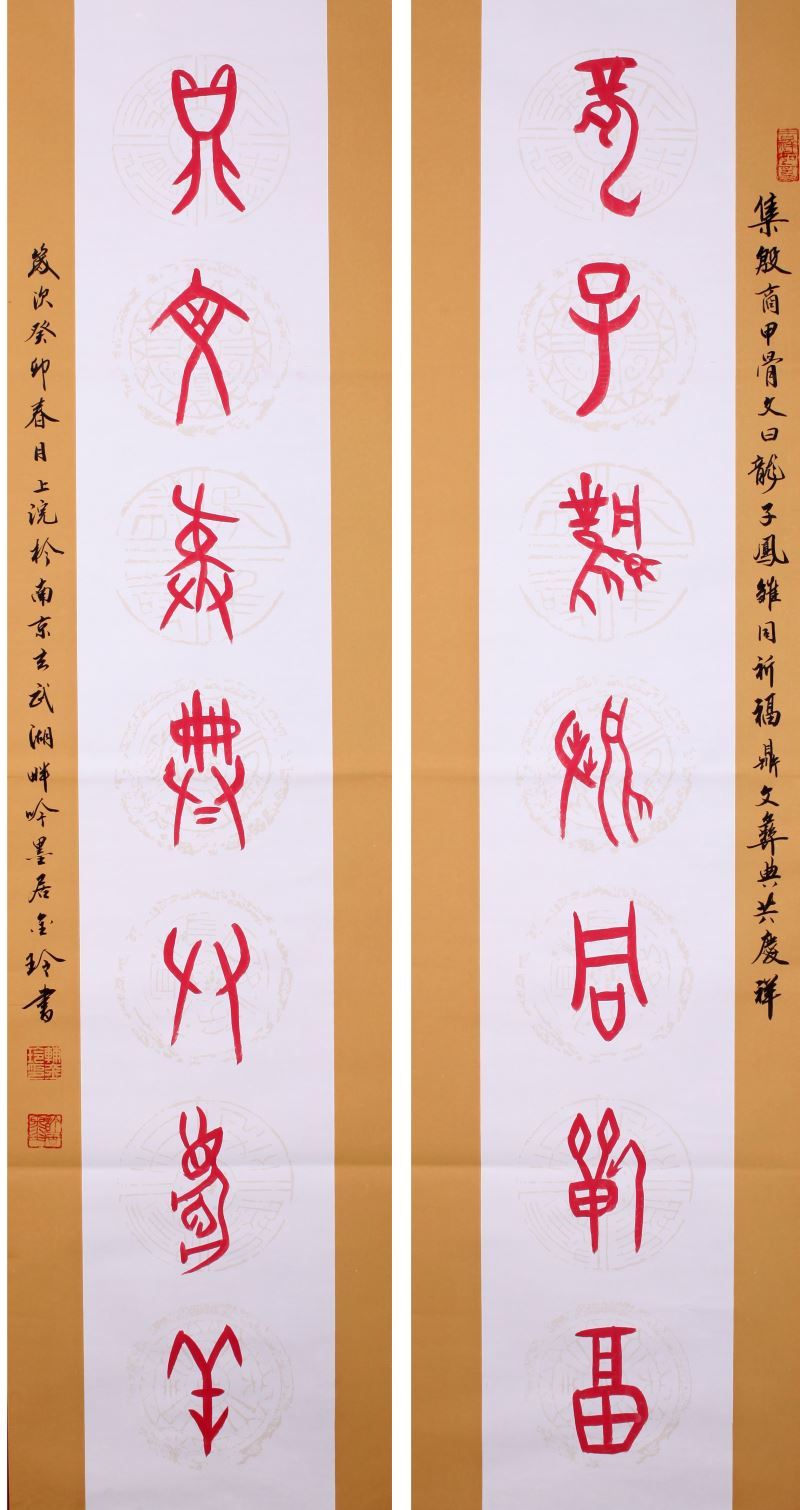 集殷商甲骨文曰龍子鳳雛同祈福鼎文彝典共慶祥
龍子鳳雛同祈福
鼎文彝典共慶祥
歲次癸卯春月上浣於南京玄武湖畔吟墨居金玲書